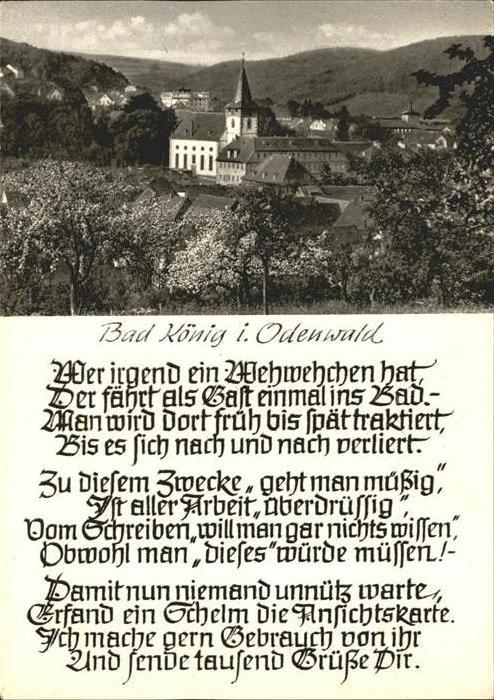 Bad König i. Odenwald
Wer irgend ein Wehwehchen hat,
Der fährt als Gast einmal ins Bad.-
Man wird dort früh bis spät traktiert,
Bis es sich nach und nach verliert.
Zu diesem Zwecke „geht man müßig",
Ist aller Arbeit „überdrüssig",
Vom Schreiben „will man gar nichts wissen",
Obwohl man „dieses" würde müssen!-
Damit nun niemand unnütz warte,
Erfand ein Schelm die Ansichtskarte.
Ich mache gern Gebrauch von ihr
Und sende tausend Grüße Dir.